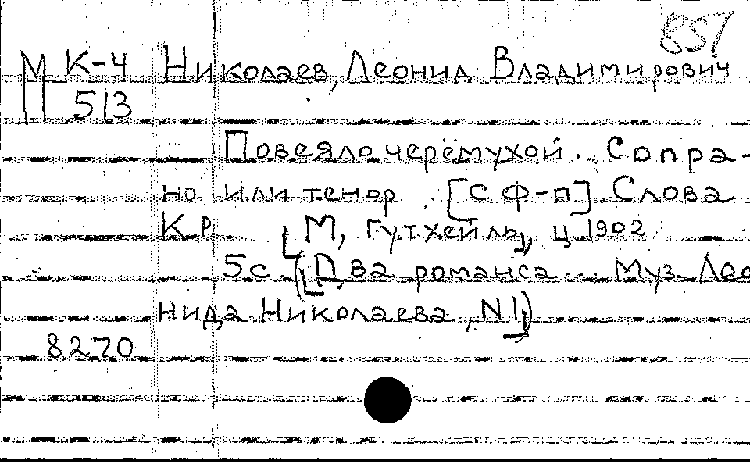 857
М К-4 Николаев, Леонид Владимирович
513
Повеяло черемухой... Сопра-
но или тенор. [с ф-п] Слова
К.Р. [М, Гутхейль, ц 1902]
5 с ([Два романса... Муз Лео
нида Николаева, N1])
8270